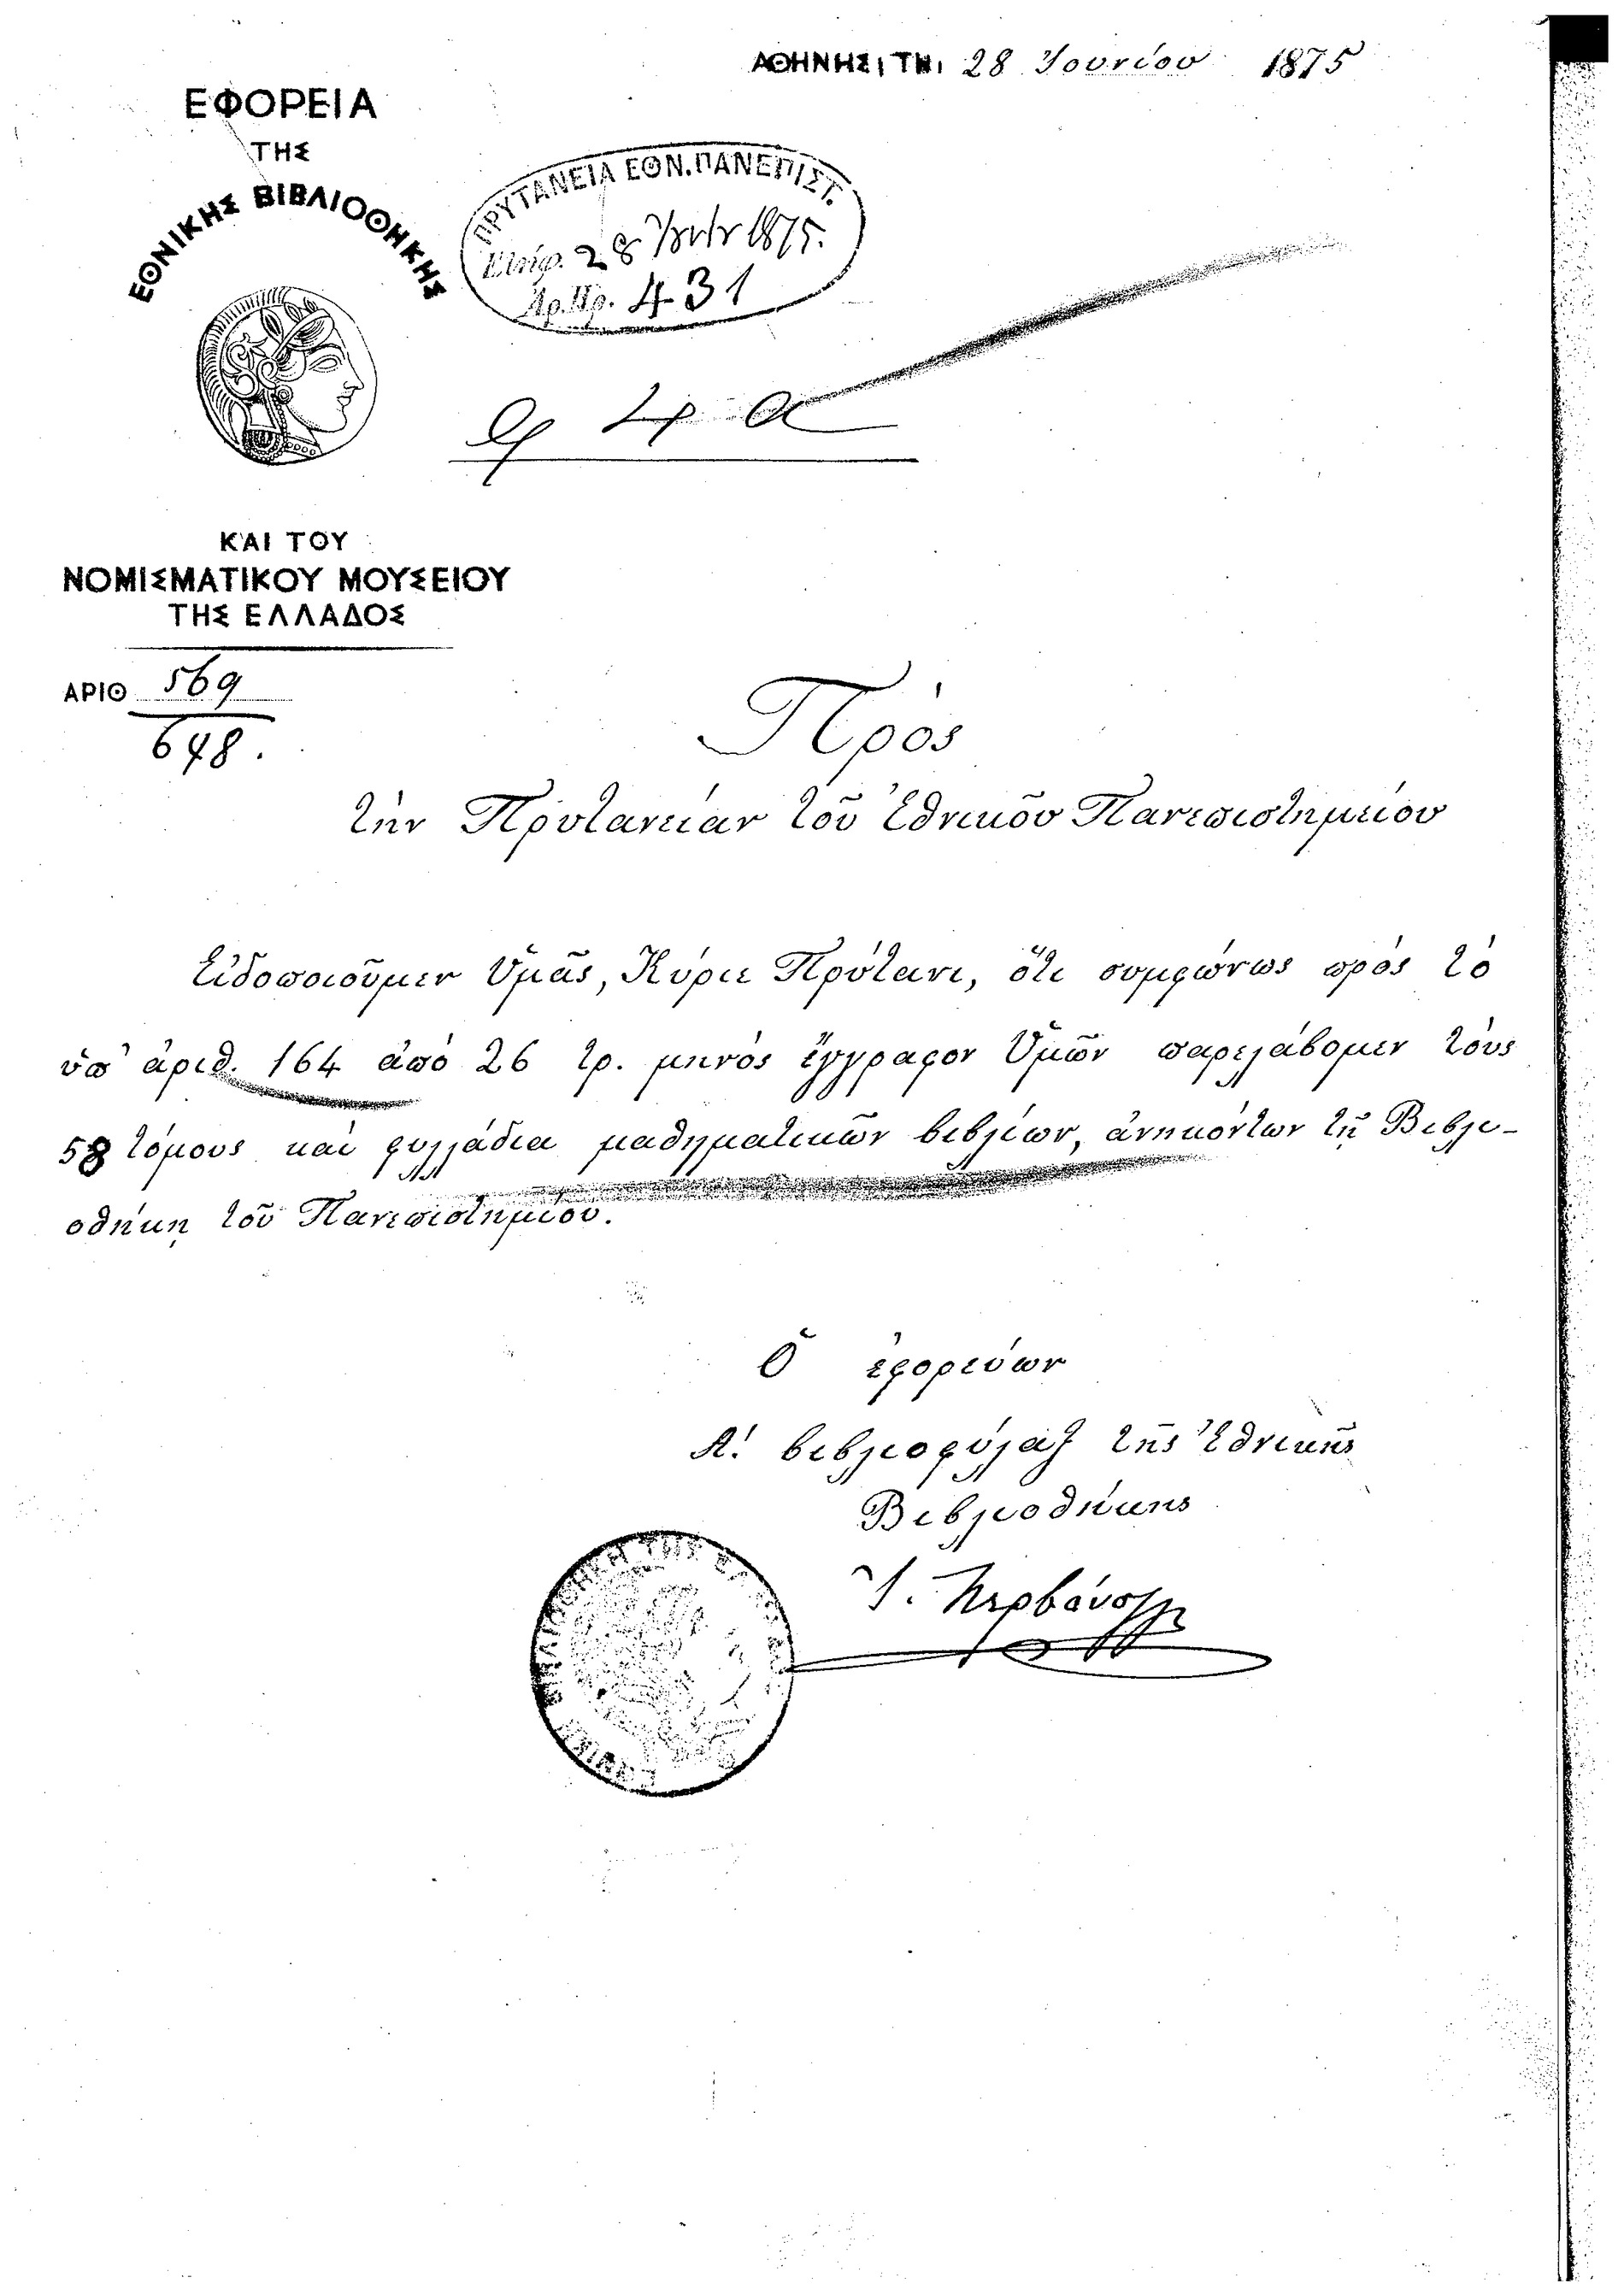 ΑΘΗΝΗΣΙ, ΤΗι 28 Ἰουνίου 1875
ΕΦΟΡΕΙΑ
ΤΗΣ
ΕΘΝΙΚΗΣ ΒΙΒΛΙΟΘΗΚΗΣ
ΠΡΥΤΑΝΕΙΑ ΕΘΝ. ΠΑΝΕΠΙΣΤ.
28 1875.
Ἀρ. Πρ. 431
ΚΑΙ ΤΟΥ
ΝΟΜΙΣΜΑΤΙΚΟΥ ΜΟΥΣΕΙΟΥ
ΤΗΣ ΕΛΛΑΔΟΣ
ΑΡΙΘ 569
678.
Πρὸς
τὴν Πρυτανείαν τοῦ Ἐθνικοῦ Πανεπιστημείου
Εἰδοποιοῦμεν Ὑμᾶς, Κύριε Πρύτανι, ὅτι συμφώνως πρὸς τὸ
ὑπ' ἀριθ. 164 ἀπὸ 26 τρ. μηνὸς ἔγγραφον Ὑμῶν παρελάβομεν τοὺς
58 τόμους καὶ φυλλάδια μαθηματικῶν βιβλίων, ἀνηκόντων τῇ Βιβλι-
οθήκῃ τοῦ Πανεπιστημείου.
Ὁ ἐφορεύων
Α! βιβλιοφύλαξ τῆς Ἐθνικῆς
Βιβλιοθήκης